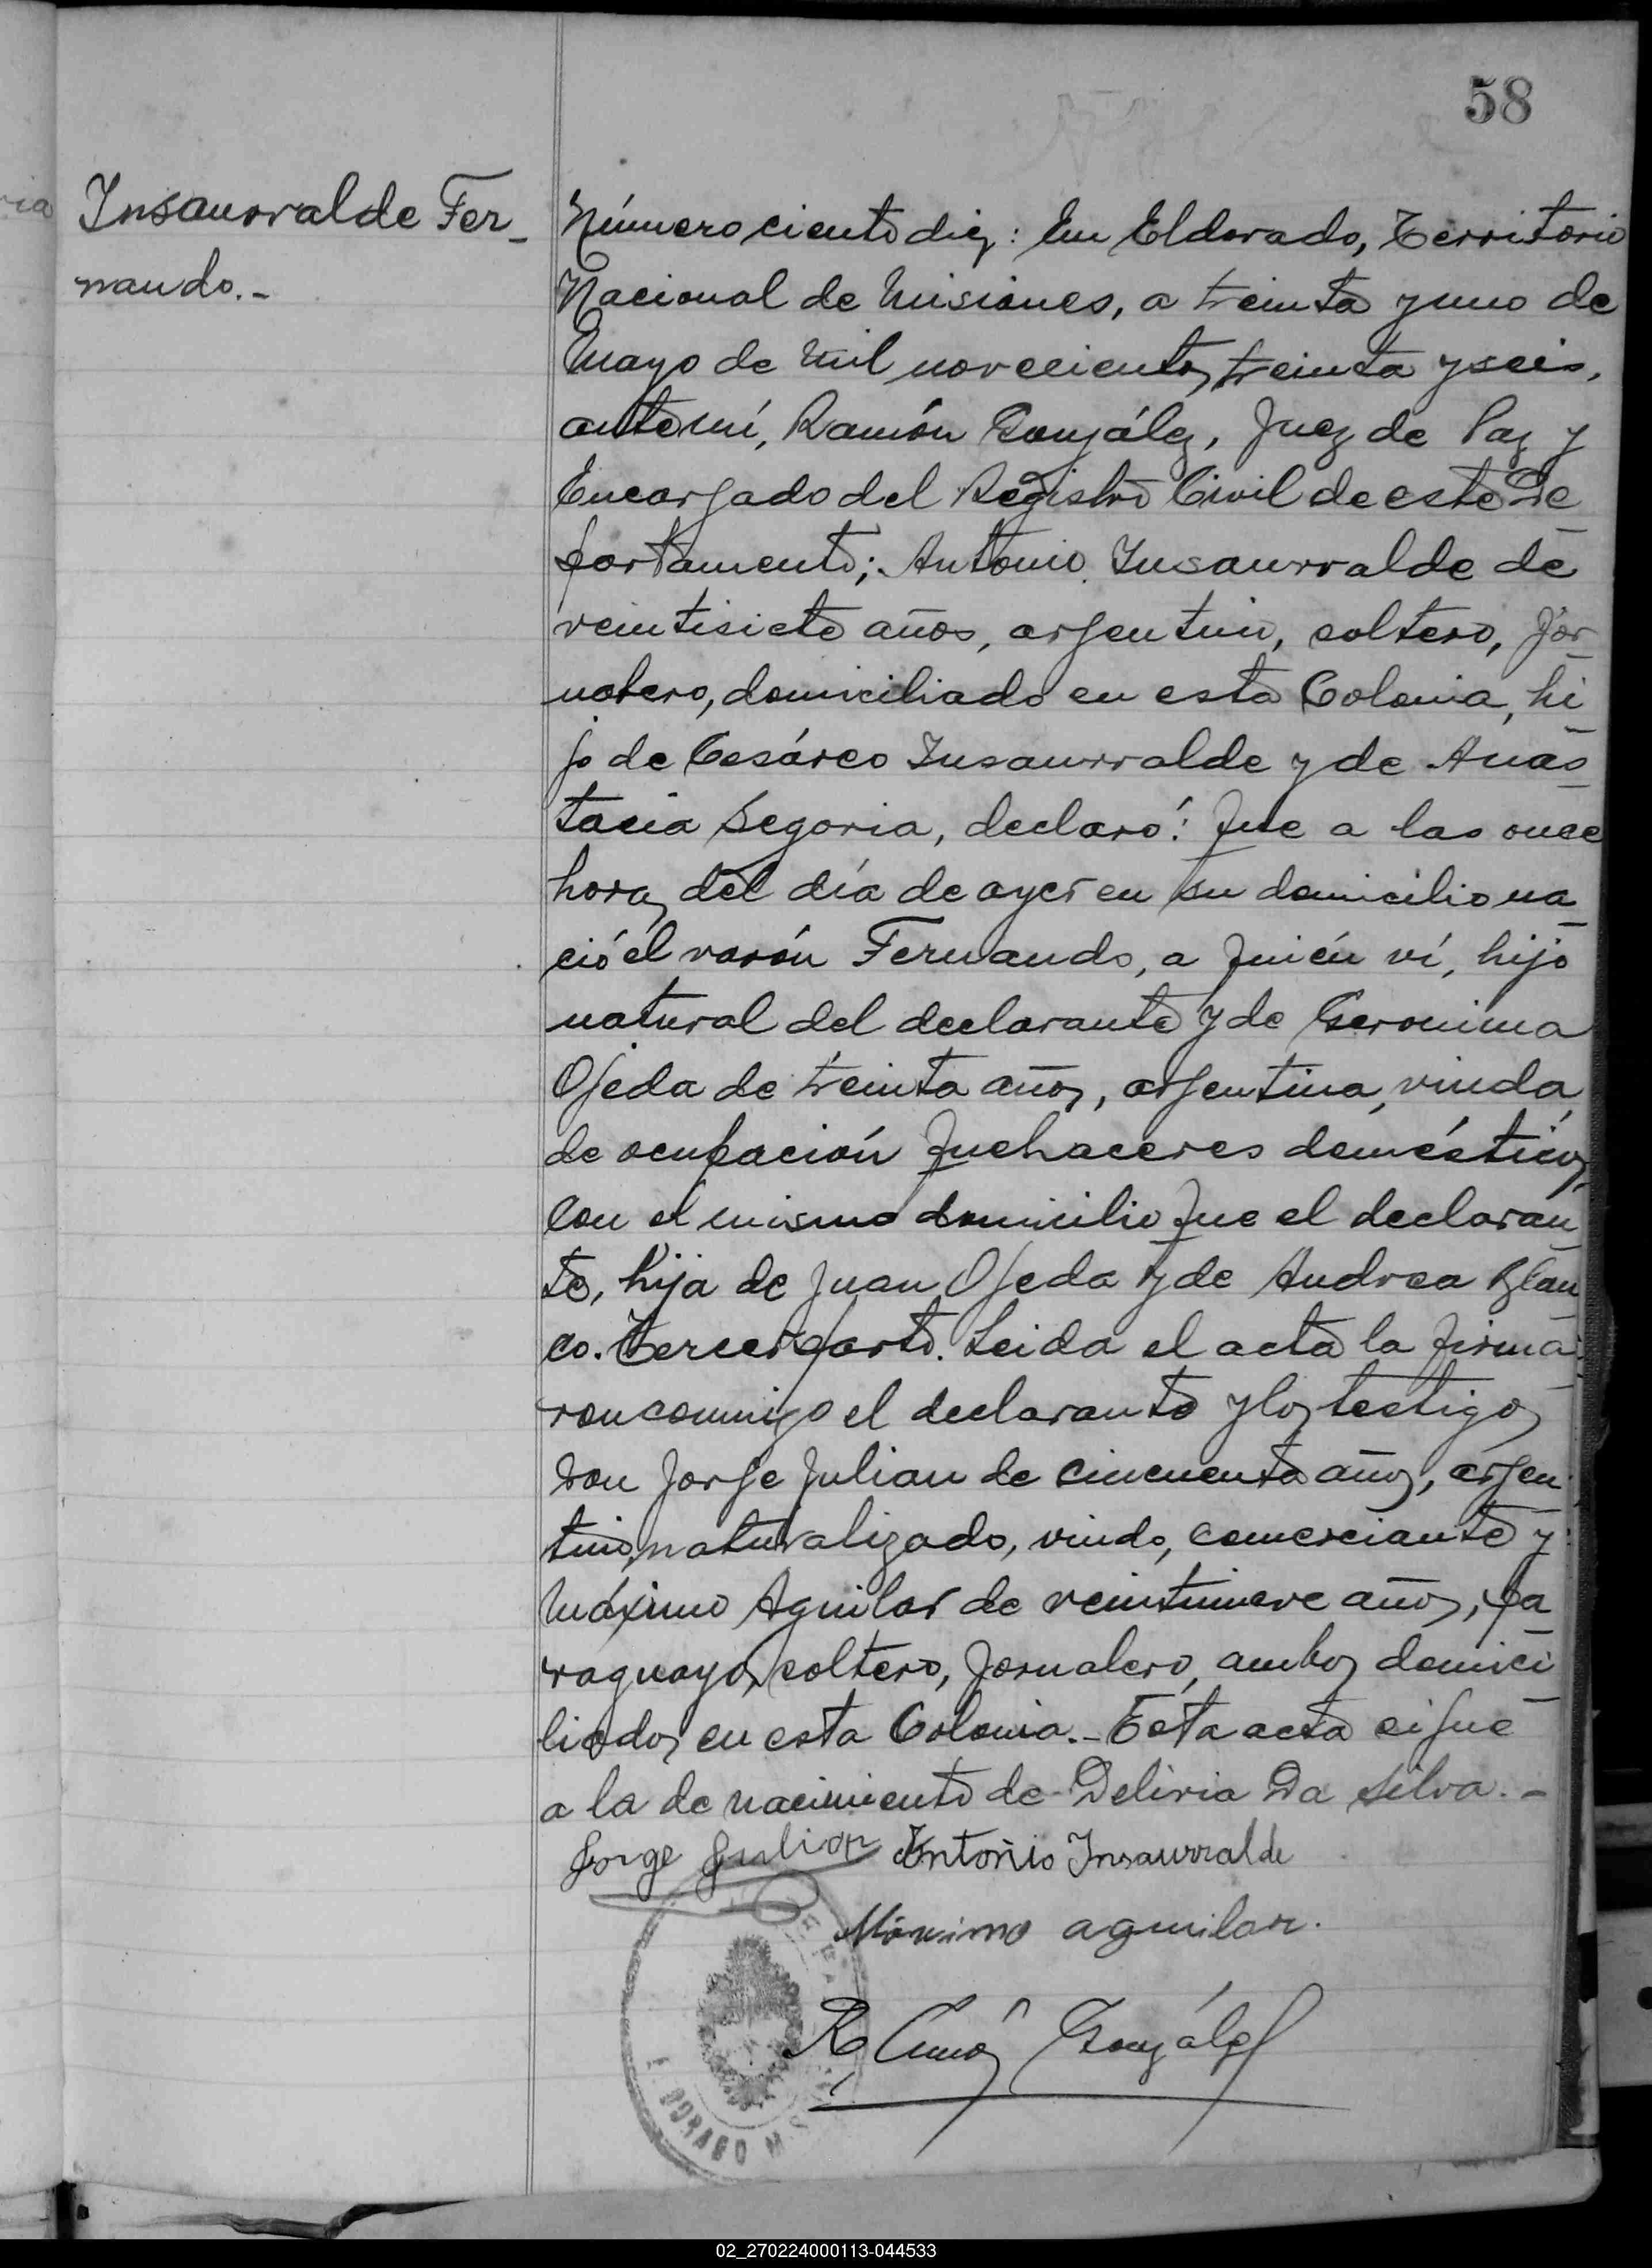 58
Insaurralde Fer-
nando.-
Número ciento diez: En Eldorado, Territorio
Nacional de Misiones, a treinta y uno de
Mayo de mil novecientos treinta y seis,
ante mí, Ramón González, Juez de Paz y
Encargado del Registro Civil de este De
partamento; Antonio Insaurralde de
veintisiete años, argentino, soltero, jor-
nalero, domiciliado en esta Colonia, hi-
jo de Cesáreo Insaurralde y de Anas-
tacia Segovia, declaró: Que a las once
horas del día de ayer en su domicilio na-
ció el varón Fernando, a quién ví, hijo
natural del declarante y de Geronima
Ojeda de treinta años, argentina, viuda,
de ocupación quehaceres domésticos,
con el mismo domicilio que el declaran-
te, hija de Juan Ojeda y de Andrea Blan-
co. Tercer parto. Leida el acta la firma-
ron conmigo el declarante y los testigos
don Jorge Julian de cincuenta años, argen-
tino, naturalizado, viudo, comerciante y
Máximo Aguilar de veintinueve años, pa-
raguayo, soltero, jornalero, ambos domici-
liados en esta Colonia.- Esta acta sigue
a la de nacimiento de Deliria Da Silva.-
Jorge Julian Antonio Insaurralde
Máximo aguilar.
Ramón González
02_270224000113-044533